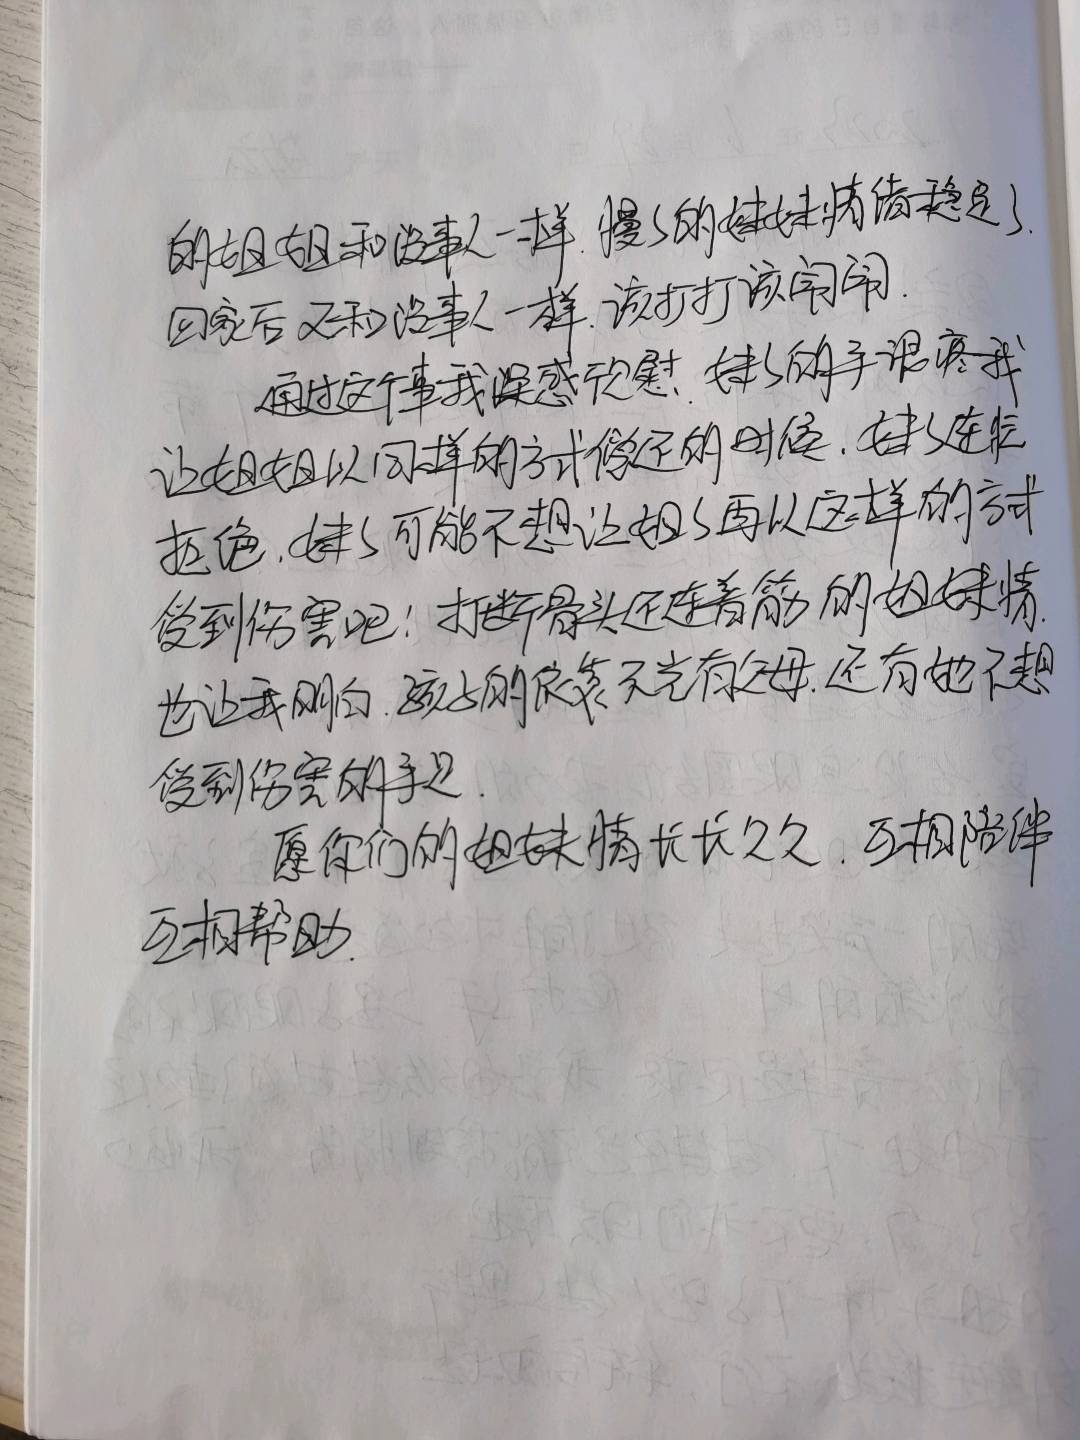 的姐姐和没事人一样.慢々的妹妹情绪稳定了.
回家后又和没事人一样.该打打该闹闹.
通过这个事我深感欣慰.妹々的手很疼我
让姐姐以同样的方式偿还的时候.妹々连忙
拒绝.妹々可能不想让姐々再以这样的方式
受到伤害吧!打断骨头还连着筋的姐妹情.
也让我明白.孩子的依靠不光有父母.还有她不想
受到伤害的手足.
愿你们的姐妹情长长久久.互相陪伴
互相帮助.